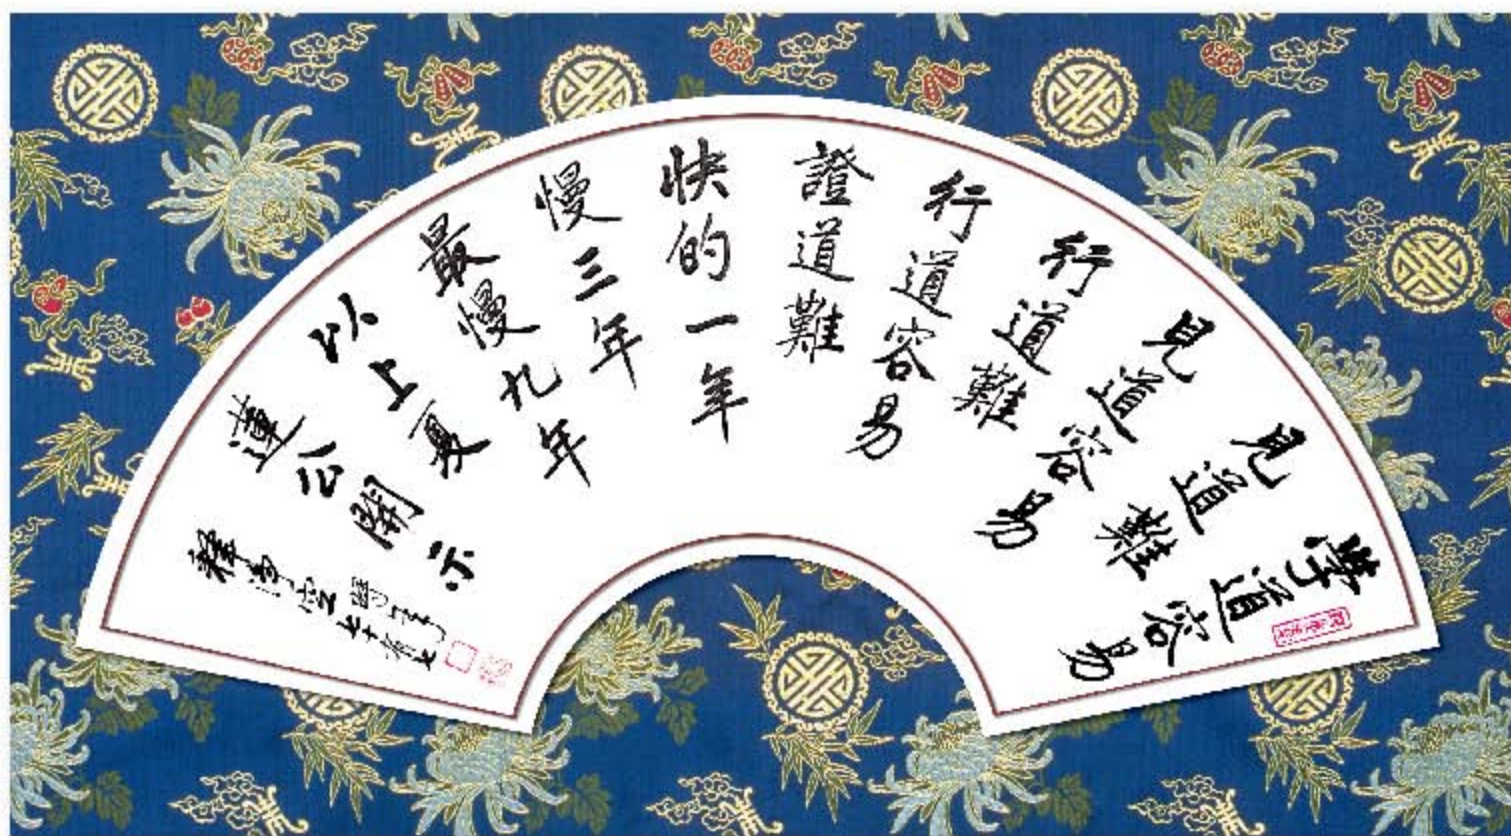 學道容易
見道難
見道容易
行道難
行道容易
證道難
快的一年
慢三年
最慢九年
以上夏
蓮公開示
釋淨空